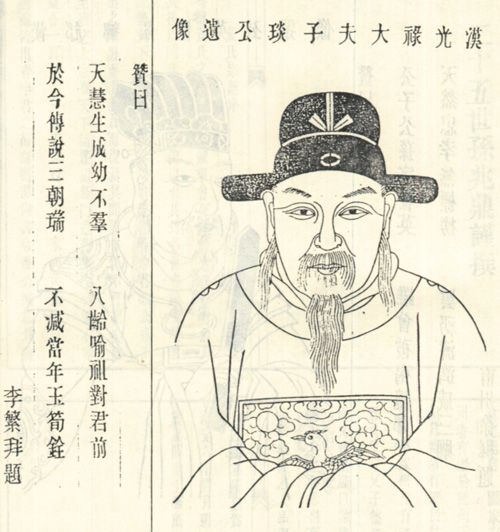 漢光祿大夫子琰公遺像
贊曰
天慧生成幼不羣　八齡喻祖對君前
於今傳說三朝瑞　不减當年玉筍銓
李繁拜題